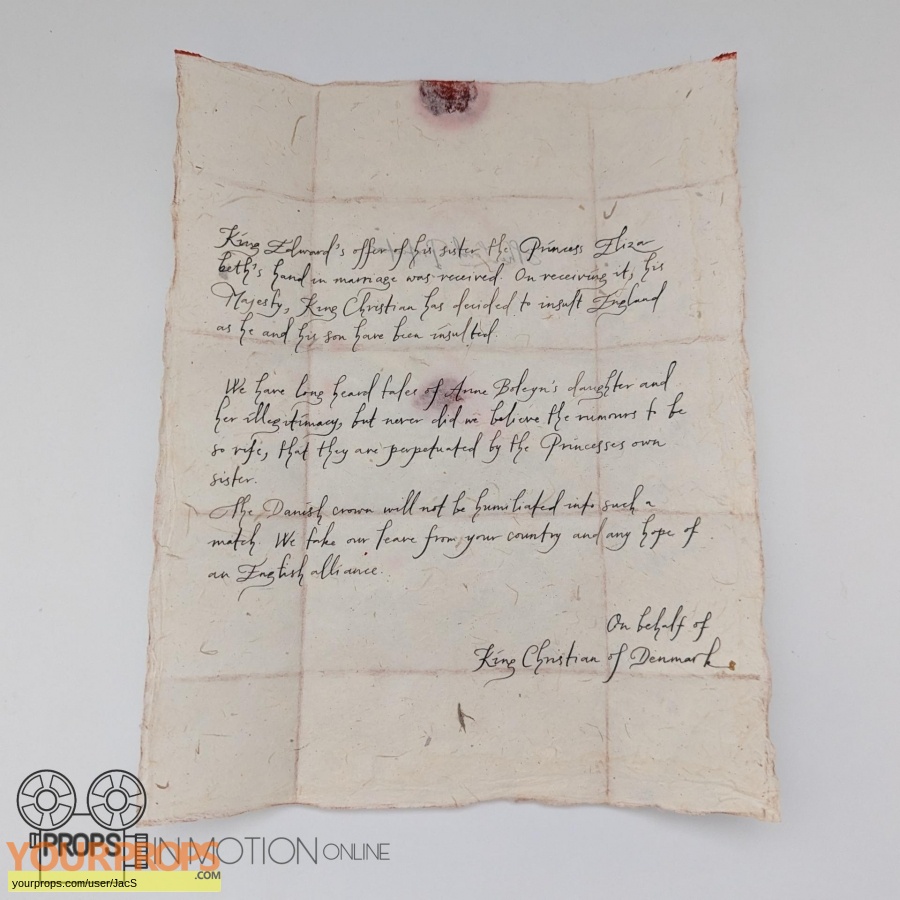 King Edward's offer of his sister the Princess Eliza
beth's hand in marriage was received. On receiving it, his
Majesty, King Christian has decided to insult England
as he and his son have been insulted.
We have long heard tales of Anne Boleyn's daughter and
her illegitimacy, but never did we believe the rumours to be
so rife, that they are perpetuated by the Princesses own
sister.
The Danish crown will not be humiliated into such a
match. We take our leave from your country and any hope of
an English alliance.
On behalf of
King Christian of Denmark
PROPS
IN MOTION ONLINE
YOURPROPS
.COM
yourprops.com/user/JacS